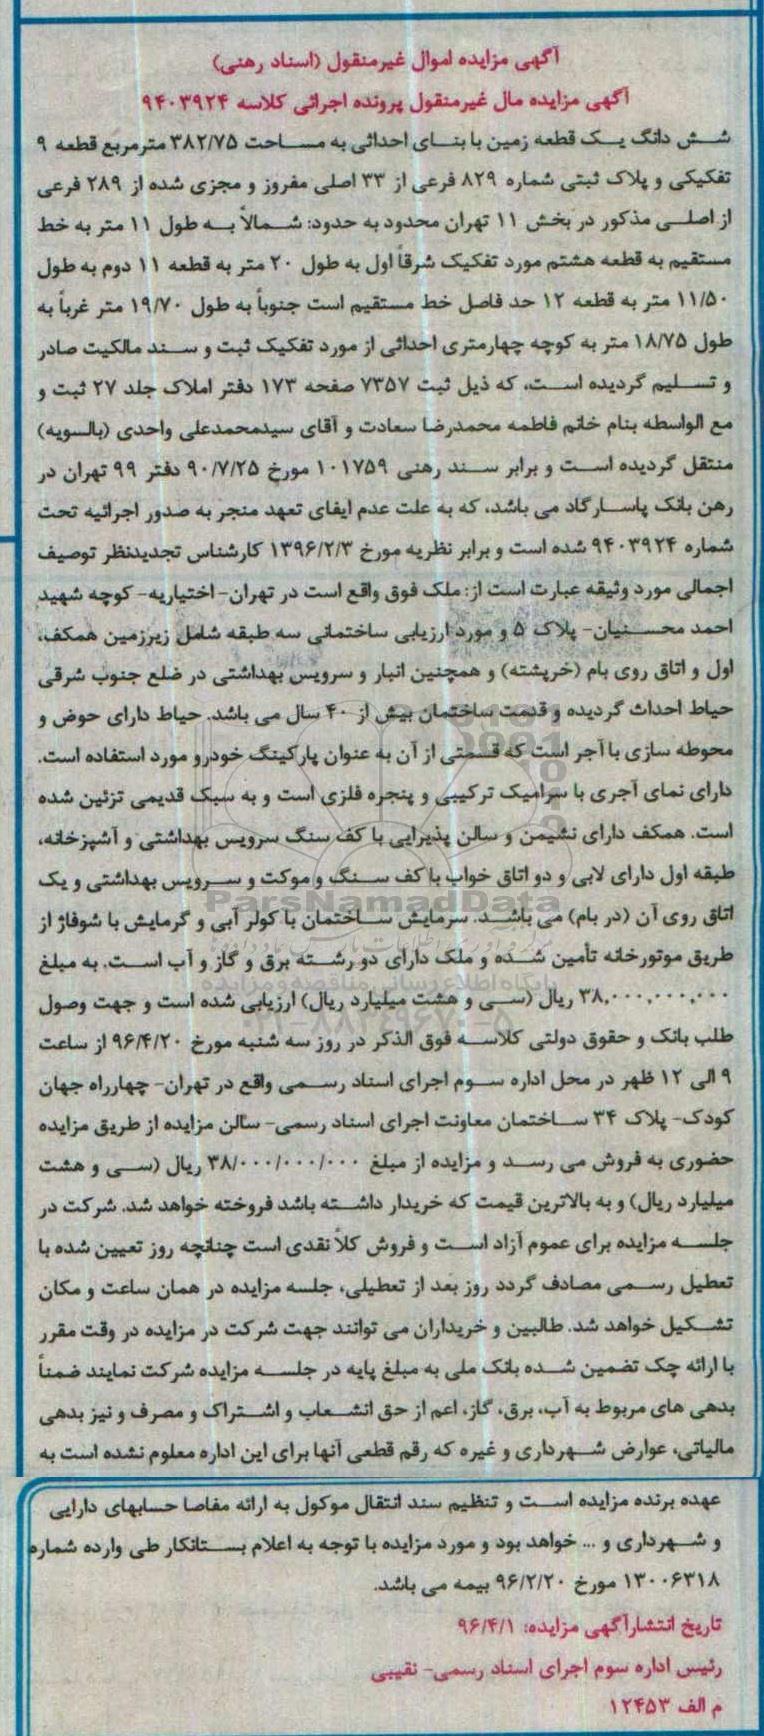 آگهی مزایده اموال غیرمنقول (اسناد رهنی)
آگهی مزایده مال غیرمنقول پرونده اجرائی کلاسه ۹۴۰۳۹۲۴
شش دانگ یک قطعه زمین با بنای احداثی به مساحت ۳۸۲/۷۵ مترمربع قطعه ۹
تفکیکی و پلاک ثبتی شماره ۸۲۹ فرعی از ۳۳ اصلی مفروز و مجزی شده از ۲۸۹ فرعی
از اصلی مذکور در بخش ۱۱ تهران محدود به حدود: شمالاً به طول ۱۱ متر به خط
مستقیم به قطعه هشتم مورد تفکیک شرقاً اول به طول ۲۰ متر به قطعه ۱۱ دوم به طول
۱۱/۵۰ متر به قطعه ۱۲ حد فاصل خط مستقیم است جنوباً به طول ۱۹/۷۰ متر غرباً به
طول ۱۸/۷۵ متر به کوچه چهارمتری احداثی از مورد تفکیک ثبت و سند مالکیت صادر
و تسلیم گردیده است، که ذیل ثبت ۷۳۵۷ صفحه ۱۷۳ دفتر املاک جلد ۲۷ ثبت و
مع الواسطه بنام خانم فاطمه محمدرضا سعادت و آقای سیدمحمدعلی واحدی (بالسویه)
منتقل گردیده است و برابر سند رهنی ۱۰۱۷۵۹ مورخ ۹۰/۷/۲۵ دفتر ۹۹ تهران در
رهن بانک پاسارگاد می باشد، که به علت عدم ایفای تعهد منجر به صدور اجرائیه تحت
شماره ۹۴۰۳۹۲۴ شده است و برابر نظریه مورخ ۱۳۹۶/۲/۳ کارشناس تجدیدنظر توصیف
اجمالی مورد وثیقه عبارت است از: ملک فوق واقع است در تهران- اختیاریه- کوچه شهید
احمد محسنیان- پلاک ۵ و مورد ارزیابی ساختمانی سه طبقه شامل زیرزمین همکف،
اول و اتاق روی بام (خرپشته) و همچنین انبار و سرویس بهداشتی در ضلع جنوب شرقی
حیاط احداث گردیده و قدمت ساختمان بیش از ۴۰ سال می باشد. حیاط دارای حوض و
محوطه سازی با آجر است که قسمتی از آن به عنوان پارکینگ خودرو مورد استفاده است.
دارای نمای آجری با سرامیک ترکیبی و پنجره فلزی است و به سبک قدیمی تزئین شده
است. همکف دارای نشیمن و سالن پذیرایی با کف سنگ سرویس بهداشتی و آشپزخانه،
طبقه اول دارای لابی و دو اتاق خواب با کف سنگ و موکت و سرویس بهداشتی و یک
ParsNamadData
اتاق روی آن (در بام) می باشد. سرمایش ساختمان با کولر آبی و گرمایش با شوفاژ از
طریق موتورخانه تأمین شده و ملک دارای دو رشته برق و گاز و آب است. به مبلغ
پایگاه اطلاع رسانی مناقصه و مزایده
۳۸,۰۰۰,۰۰۰,۰۰۰ ریال (سی و هشت میلیارد ریال) ارزیابی شده است و جهت وصول
طلب بانک و حقوق دولتی کلاسه فوق الذکر در روز سه شنبه مورخ ۹۶/۴/۲۰ از ساعت
۹ الی ۱۲ ظهر در محل اداره سوم اجرای اسناد رسمی واقع در تهران- چهارراه جهان
کودک- پلاک ۳۴ ساختمان معاونت اجرای اسناد رسمی- سالن مزایده از طریق مزایده
حضوری به فروش می رسد و مزایده از مبلغ ۳۸/۰۰۰/۰۰۰/۰۰۰ ریال (سی و هشت
میلیارد ریال) و به بالاترین قیمت که خریدار داشته باشد فروخته خواهد شد. شرکت در
جلسه مزایده برای عموم آزاد است و فروش کلاً نقدی است چنانچه روز تعیین شده با
تعطیل رسمی مصادف گردد روز بعد از تعطیلی، جلسه مزایده در همان ساعت و مکان
تشکیل خواهد شد. طالبین و خریداران می توانند جهت شرکت در مزایده در وقت مقرر
با ارائه چک تضمین شده بانک ملی به مبلغ پایه در جلسه مزایده شرکت نمایند ضمناً
بدهی های مربوط به آب، برق، گاز، اعم از حق انشعاب و اشتراک و مصرف و نیز بدهی
مالیاتی، عوارض شهرداری و غیره که رقم قطعی آنها برای این اداره معلوم نشده است به
عهده برنده مزایده است و تنظیم سند انتقال موکول به ارائه مفاصا حسابهای دارایی
و شهرداری و ... خواهد بود و مورد مزایده با توجه به اعلام بستانکار طی وارده شماره
۱۳۰۰۶۳۱۸ مورخ ۹۶/۲/۲۰ بیمه می باشد.
تاریخ انتشارآگهی مزایده: ۹۶/۴/۱
رئیس اداره سوم اجرای اسناد رسمی- نقیبی
م الف ۱۲۴۵۳